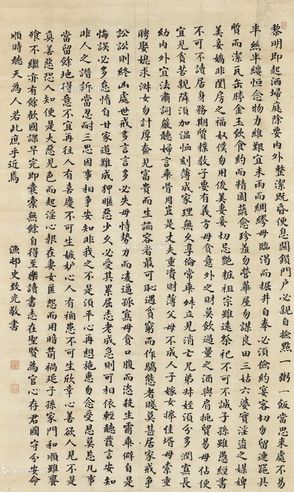 黎明即起洒掃庭除要内外整潔既昏便息關鎖門户必親自檢點一粥一飯當思來處不易
半絲半縷恒念物力維艱宜未雨而綢繆毋臨渴而掘井自奉必須儉約宴客切勿留連器具
質而潔瓦缶勝金玉飲食約而精園蔬愈珍羞勿營華屋勿謀良田三姑六婆實淫盗之媒婢
美妾嬌非閨房之福奴僕勿用俊美妻妾切忌艷粧祖宗雖遠祭祀不可不誠子孫雖愚經書
不可不讀居身務期質樸教子要有義方毋貪意外之財莫飲過量之酒與肩挑貿易毋佔便
宜見貧苦親隣須加温恤刻薄成家理無久享倫常乖舛立見消亡兄弟叔姪須分多潤寡長
幼内外宜法肅詞嚴聽婦言乖骨肉豈是丈夫重資財薄父母不成人子嫁女擇佳壻毋索重
聘娶媳求淑女勿計厚奩見富貴而生諂容者最可恥遇貧窮而作驕態者賤莫甚居家戒争
訟訟則終凶處世戒多言言多必失毋恃勢力而凌逼孤寡毋貪口腹而恣殺生靈乖僻自是
悔誤必多頹惰自甘家道難成狎暱惡少久必受其累屈志老成急則可相依輕聽發言安知
非人之譖訴當忍耐三思因事相争安知非我之不是須平心再想施惠勿念受恩莫忘凡事
當留餘地得意不宜再往人有喜慶不可生妬心人有禍患不可生欣幸心善欲人見不是
真善惡恐人知便是大惡見色而起淫心報在妻女匿怨而用暗箭禍延子孫家門和順雖饔
飧不繼亦有餘歡國課早完即囊橐無餘自得至樂讀書志在聖賢為官心存君國守分安命
順時聽天為人若此庶乎近焉
漁邨史致光敬書